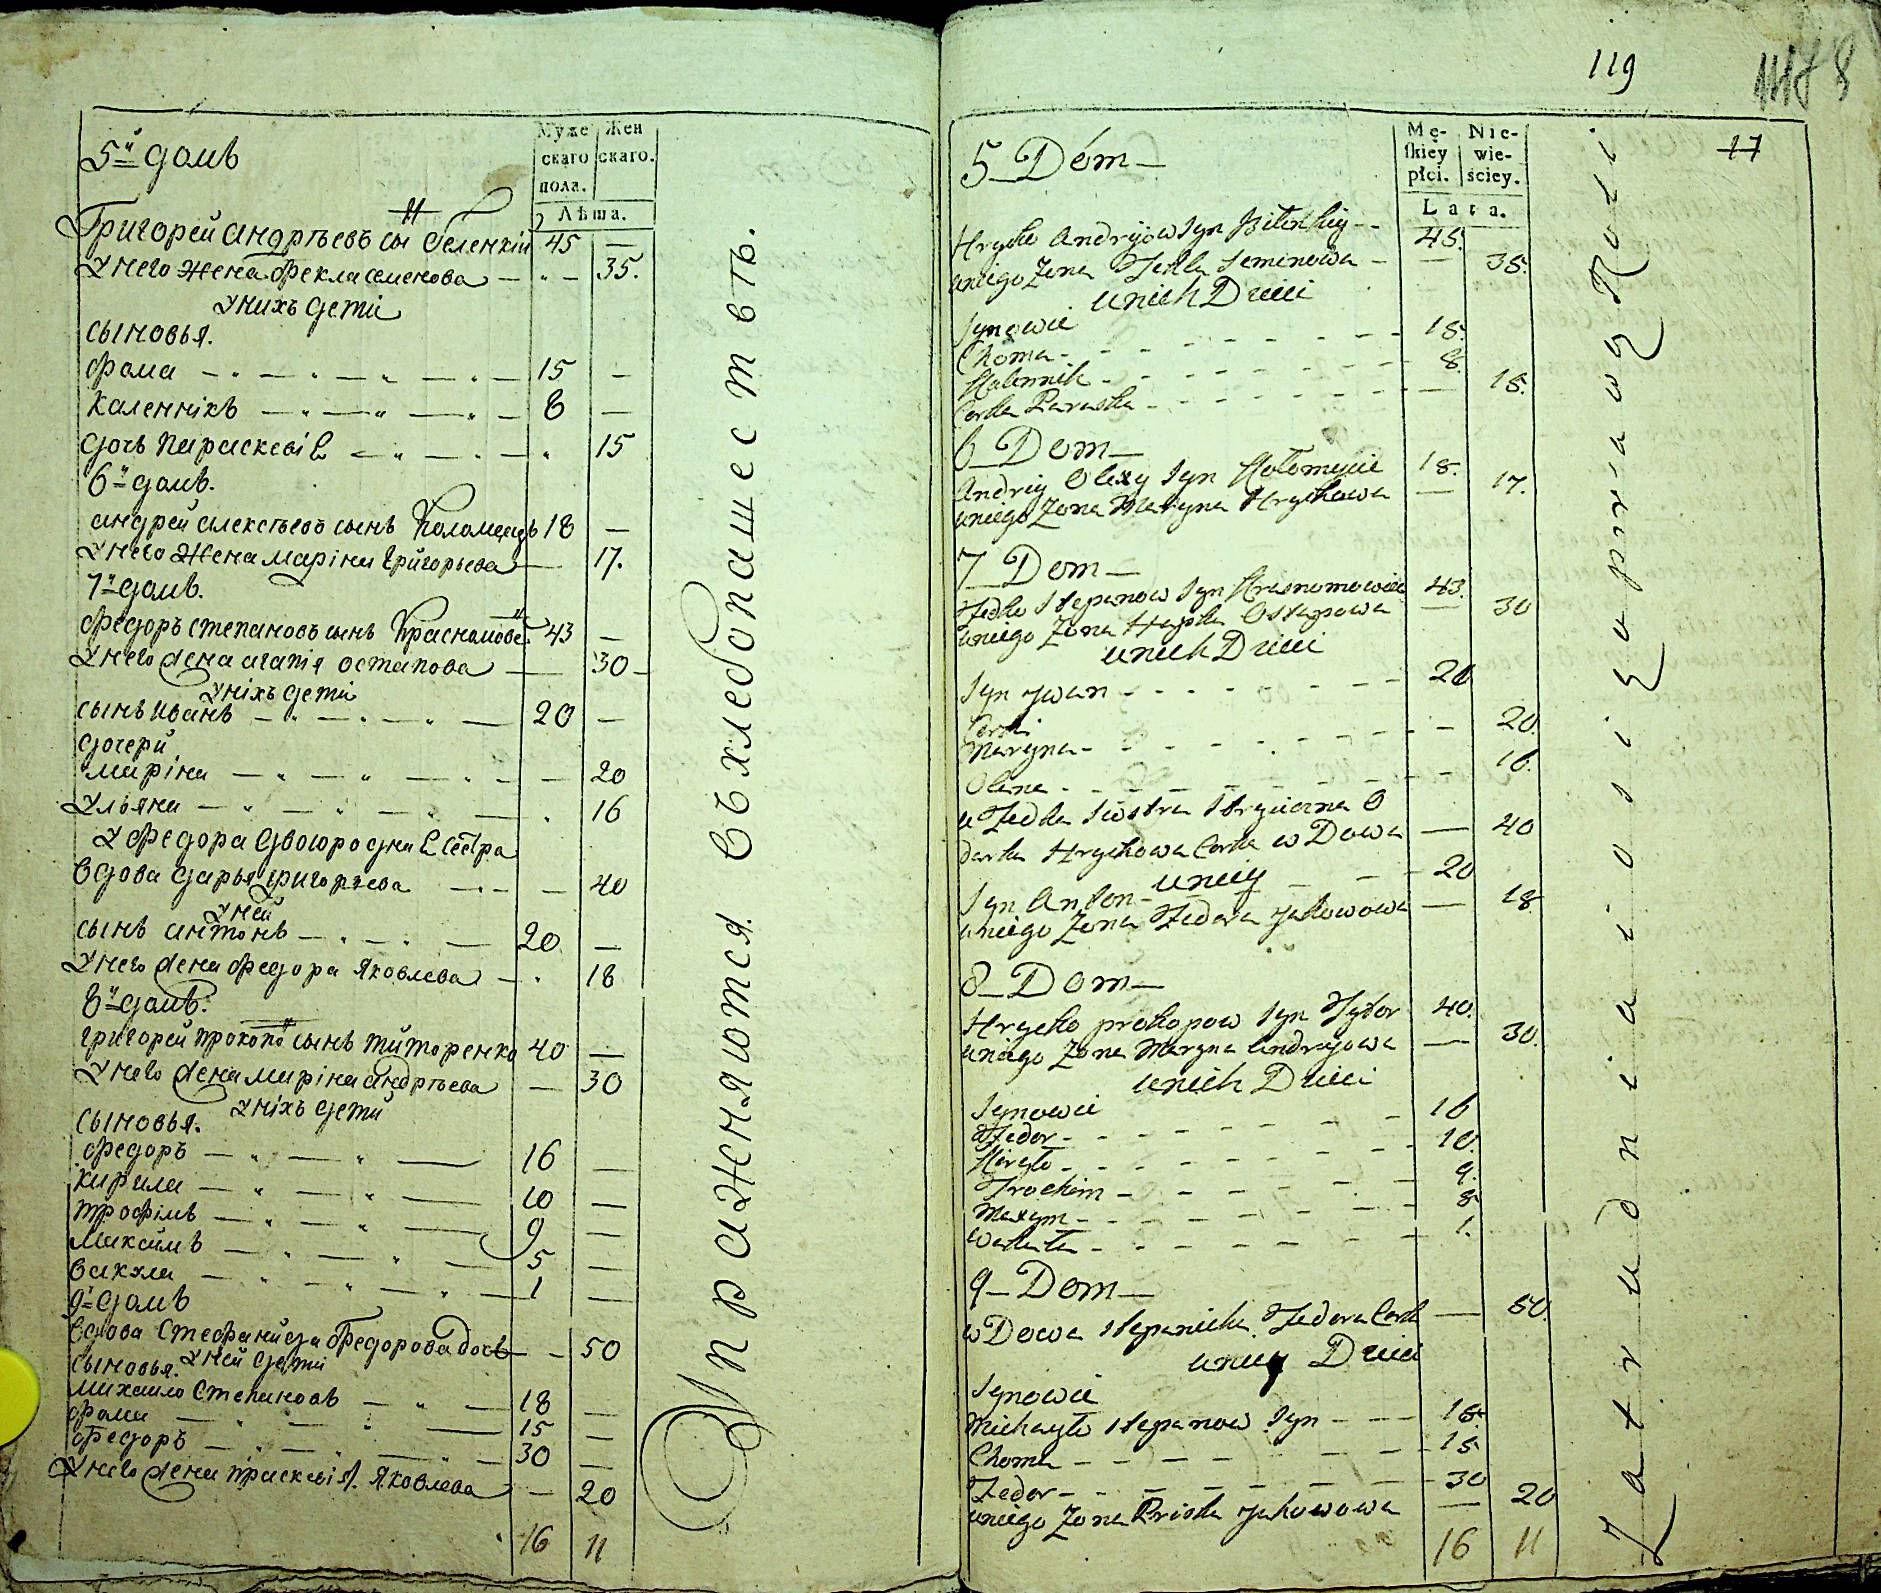 5й домъ
Муже
скаго
пола.
Жен
скаго.
Лѣта.
11
Григорей андрѣевъ сы Беленкій 45 —
У него жена Фекла семенова — 35.
У нихъ дети
сыновья.
Фома 15 —
Каленникъ 8 —
дочь параскевія 15
6й домъ.
андрей алексѣевъ сынъ Коломецъ 18 —
У него жена марина Григорьева — 17.
7й домъ.
Федоръ степановъ сынъ 43 —
У него жена агапія остапова — 30
У нихъ дети
сынъ иванъ 20 —
дочери
марина — 20
ульяна 16
У Федора двоюродная сестра
Вдова дарья григорьева — 40
У ней
сынъ антонъ 20 —
У него жена Федора Яковлева 18
8й домъ.
григорей прокопо сынъ титоренко 40 —
У него жена марина андрѣева — 30
У нихъ дети
сыновья.
Федоръ 16 —
кирила 10 —
трофимъ 9 —
максимъ 5 —
вакула 1 —
9й домъ
Вдова Стефанида Федорова дочь — 50
У ней дети
сыновья.
михаило степановъ 18 —
фома 15 —
Федоръ 30 —
У него жена прасковія Яковлева — 20
16 11
Упражняются въ хлебопашествѣ.
119
1178
17
5 Dom
Mę-
skiey
płci.
Nie-
wie-
ściey.
Lata.
Hryćko Andryiow Syn Bilenkiy 45.
u niego Zona Fekla Semenowa — 35.
u nich Dzieci
Synowie
Choma 15.
Kalennik 8.
Corka Paraska — 15.
6 Dom
Andriy Olexy Syn Kołomyiec 18.
u niego Zona Maryna Hryćkowa — 17.
7 Dom
Fedko Stepanow Syn 43.
u niego Zona Hapka Ostapowa — 30
u nich Dzieci
Syn Jwan 20
Corki
Maryna 20.
Olana 16.
u Fedka Siostra Stryieczna
Darka Hryćkowa Corka wDowa — 40
u niey
Syn Anton 20
u niego Zona Fedora Jakowowa — 18
8 Dom
Hryćko prokopow Syn Tytor 40.
u niego Zona Maryna Andryiowa — 30.
u nich Dzieci
Synowie
Fedor 16
Kiryło 10.
Trochim 9.
Maxym 8
Wakuła 1.
9 Dom
wDowa Stepanicha Fedora Cork — 50.
u niey Dzieci
Synowie
Michayło Stepanow Syn 18.
Choma 15
Fedor 30
u niego Zona Priska Jakowowa — 20
16 11
Zatrudniaią się uprawą Roli